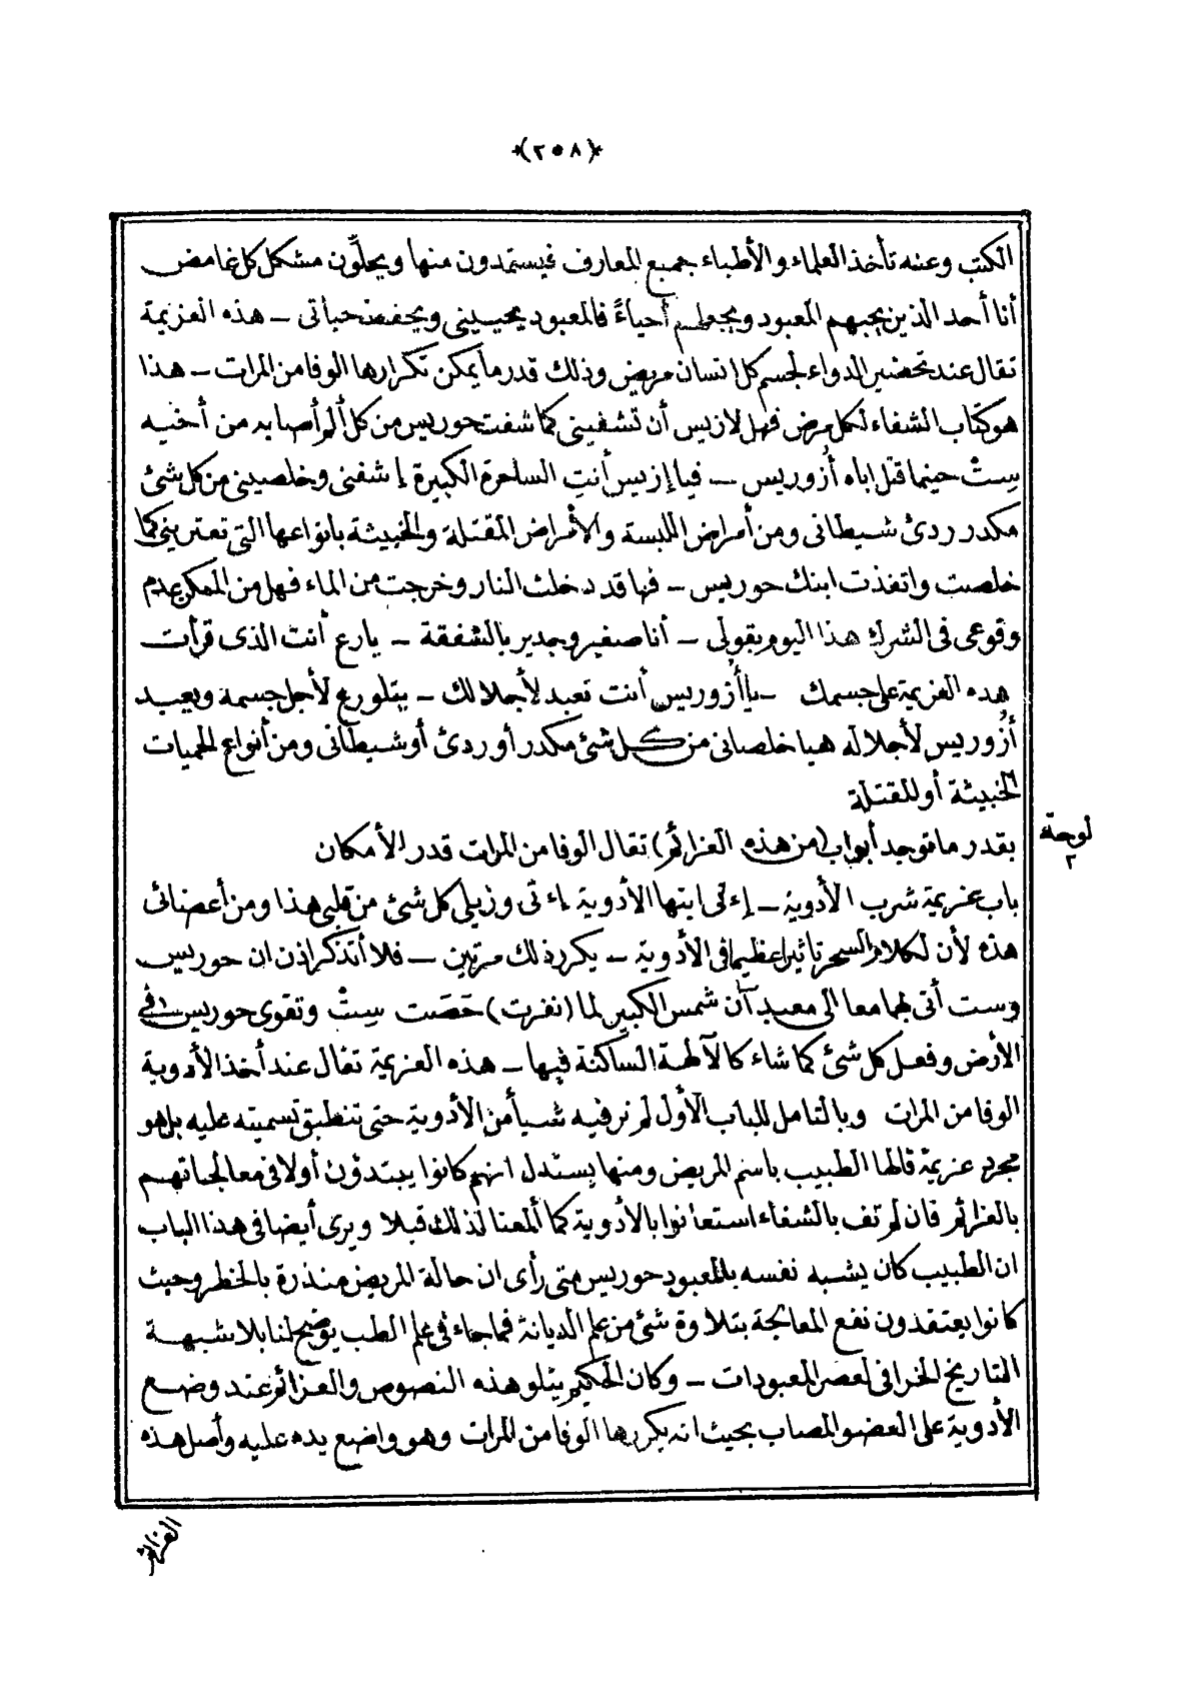 *(٢٥٨)*
الكتب وعنه تأخذ العلماء والأطباء جميع المعارف فيستمدون منها ويحلّون مشكل كل غامض
أنا أحد الذين يحبهم المعبود ويجعلهم أحياءً فالمعبود يحييني ويحفظ حياتى ــ هذه العزيمة
تقال عند تحضير الدواء لجسم كل انسان مريض وذلك قدر ما يمكن تكرارها الوفا من المرات ــ هذا
هو كتاب الشفاء لكل مرض فهل لازيس أن تشفيني كما شفت حوريس من كل ألم أصابه من أخيه
سِتْ حينما قتل اباه أزوريس ــ فيا إزيس أنتِ الساحرة الكبيرة إشفنى وخلصينى من كل شئ
مكدر ردئ شيطانى ومن أمراض اللبسة والأمراض المقتلة والخبيثة بانواعها التى تعترينى كما
خلصت وانقذت ابنك حوريس ــ فها قد دخلت النار وخرجت من الماء فهل من الممكن عدم
وقوعى فى الشرك هذا اليوم بقولى ــ أنا صغير وجدير بالشفقة ــ يا رع أنت الذى قرأت
هذه العزيمة على جسمك ــ يا أُزوريس أنت تعبد لأجلالك ــ يتلو رع لأجل جسمه ويعبد
أُزوريس لأجلاله هيا خلصانى من كل شئ مكدر أو ردئ أو شيطانى ومن أنواع الحميات
الخبيثة أو للقتلة
لوحة ٢
بقدر ما توجد أبواب (من هذه العزائم) تقال الوفا من المرات قدر الأمكان
باب عزيمة شرب الأدوية ــ إءتى ايتها الأدوية إءتى وزيلى كل شئ من قلبى هذا ومن أعضائى
هذه لأن لكلام السحر تاثيرا عظيما فى الأدوية ــ يكرر ذلك مرتين ــ فلا أتذكر اذن ان حوريس
وست أتى بهما معا الى معبد آن شمس الكبير لما (نفرت) حَصَت سِتْ وتقوى حوريس فى
الأرض وفعل كل شئ كما شاء كالآلهة الساكنة فيها ــ هذه العزيمة تقال عند أخذ الأدوية
الوفا من المرات وبالتامل للباب الأول لم نر فيه شيأ من الأدوية حتى تنطبق تسميته عليه بل هو
مجرد عزيمة قالها الطبيب باسم المريض ومنها يستدل انهم كانوا يبتدؤن أولا فى معالجاتهم
بالعزائم فان لم تف بالشفاء استعانوا بالأدوية كما ألمعنا لذلك قبلا ويرى أيضا فى هذا الباب
ان الطبيب كان يشبه نفسه بالمعبود حوريس متى رأى ان حالة المريض منذرة بالخطر وحيث
كانوا يعتقدون نفع المعالجة بتلاوة شئ من علم الديانة فما جاء فى علم الطب يوضح لنا بلا شبهة
التاريخ الخرافى لعصر المعبودات ــ وكان الحكيم يتلو هذه النصوص والعزائم عند وضع
الأدوية على العضو المصاب بحيث انه يكررها الوفا من المرات وهو واضع يده عليه وأصل هذه
العزائم